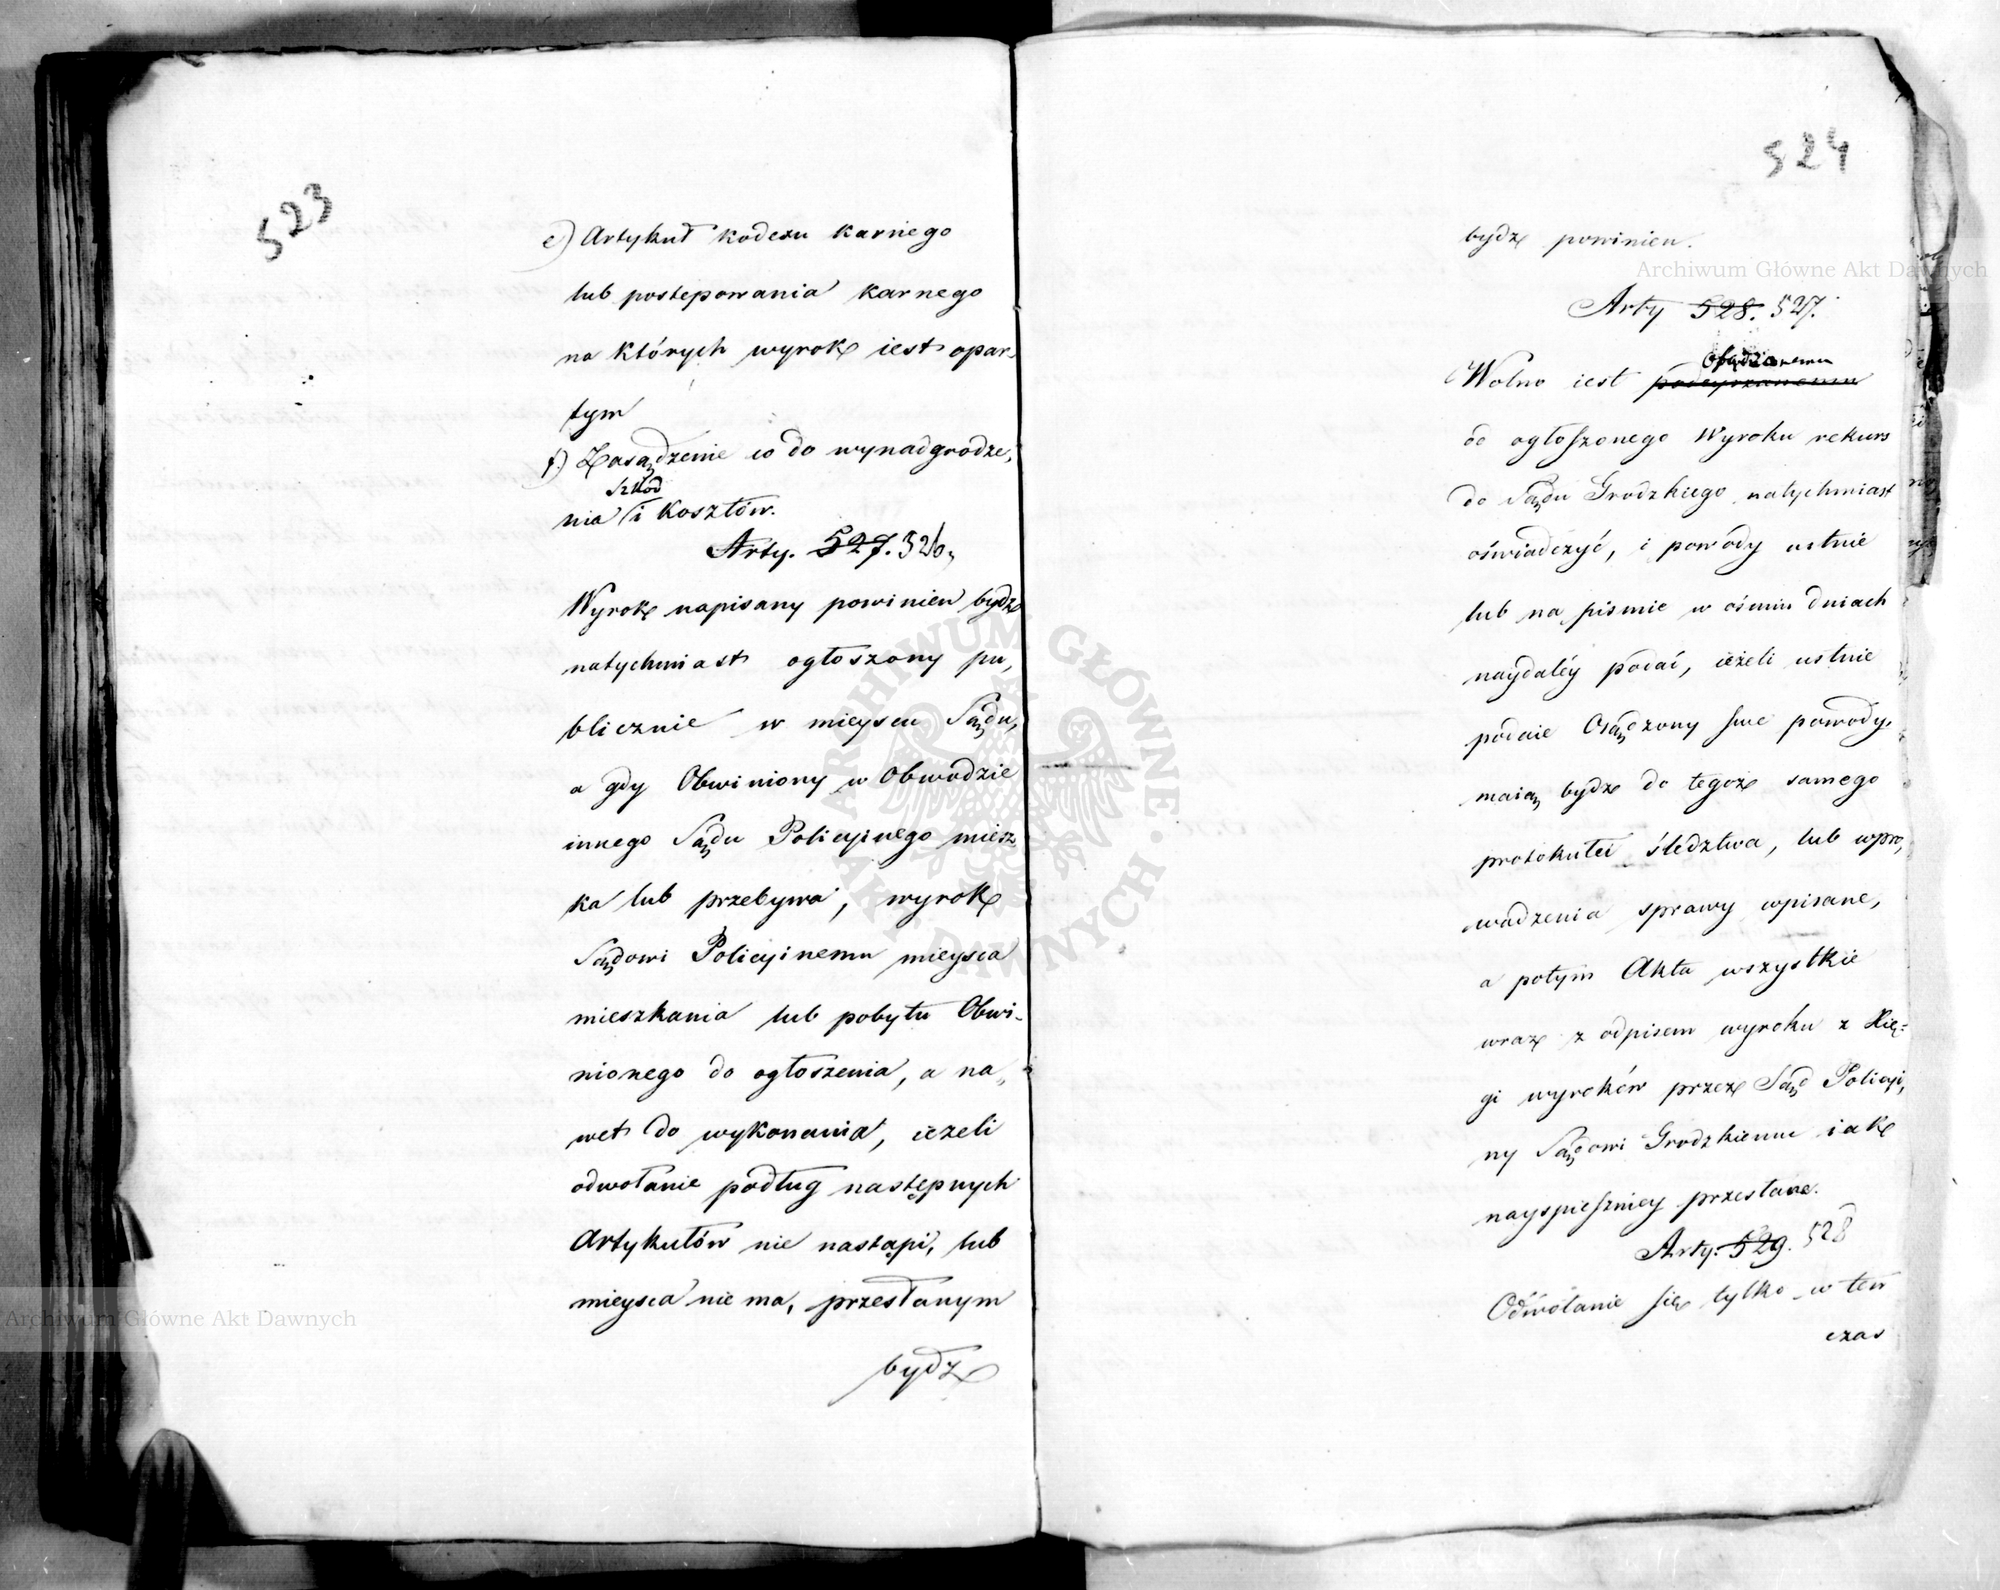 523
e) Artykuł kodexu karnego
lub postępowania karnego
na których wyrok iest opar-
tym
f) Zasądzenie co do wynadgrodze,
szkod
nia i kosztów.
Arty. 527. 526.
Wyrok napisany powinien bydź
natychmiast ogłoszony pu,
blicznie w mieyscu Sądu,
a gdy Obwiniony w Obwodzie
innego Sądu Policyinego miesz
ka lub przebywa, wyrok
Sądowi Policyinemu mieysca
mieszkania lub pobytu Obwi-
nionego do ogłoszenia, a na,
wet do wykonania, ieżeli
odwołanie podług następnych
Artykułów nie nastąpi, lub
mieysca nie ma, przesłanym
bydź
524
bydź powinien.
Arty 528. 527.
Osądzonemu
Wolno iest podeyrzanemu
od ogłoszonego Wyroku rekurs
do Sądu Grodzkiego natychmiast
oświadczyć, i powody ustnie
lub na pismie w ośmiu dniach
naydaléy podać, ieżeli ustnie
podaie Osądzony swe powody,
maią bydź do tegoż samego
protokułu śledztwa, lub wpro,
wadzenia sprawy wpisane,
a potym Akta wszystkie
wraz z odpisem wyroku z Xię-
gi wyroków przez Sąd Policyi,
ny Sądowi Grodzkiemu iak
nayspieszniey przesłane.
Arty. 529. 528
Odwołanie się tylko w ten
czas
Archiwum Główne Akt Dawnych
Archiwum Główne Akt Dawnych
ARCHIWUM GŁÓWNE AKT DAWNYCH